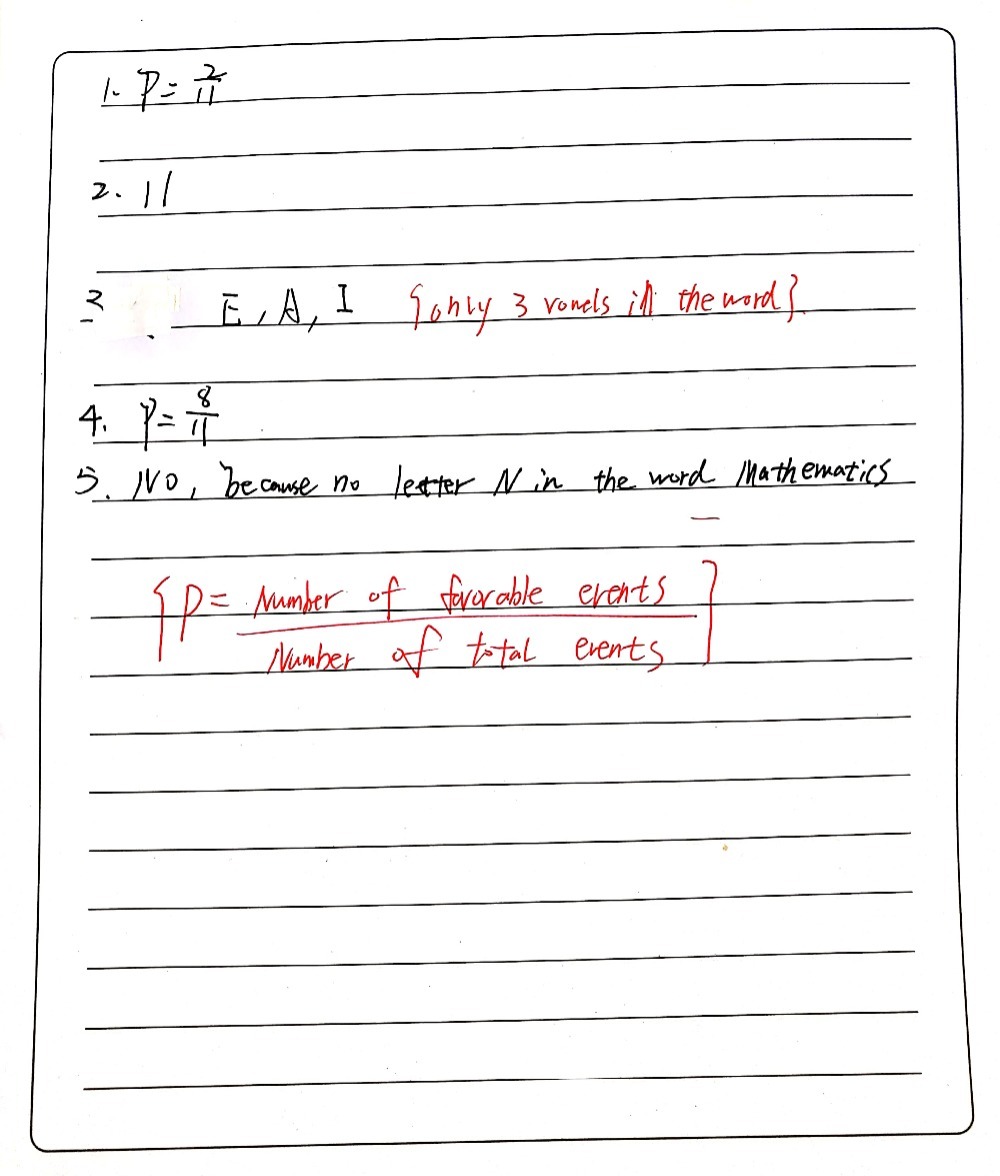 1. P = 2/11
2. 11
3 E, A, I {only 3 vowels in the word}
4. P = 8/11
5. NO, because no letter N in the word Mathematics
{P = Number of favorable events
Number of total events}